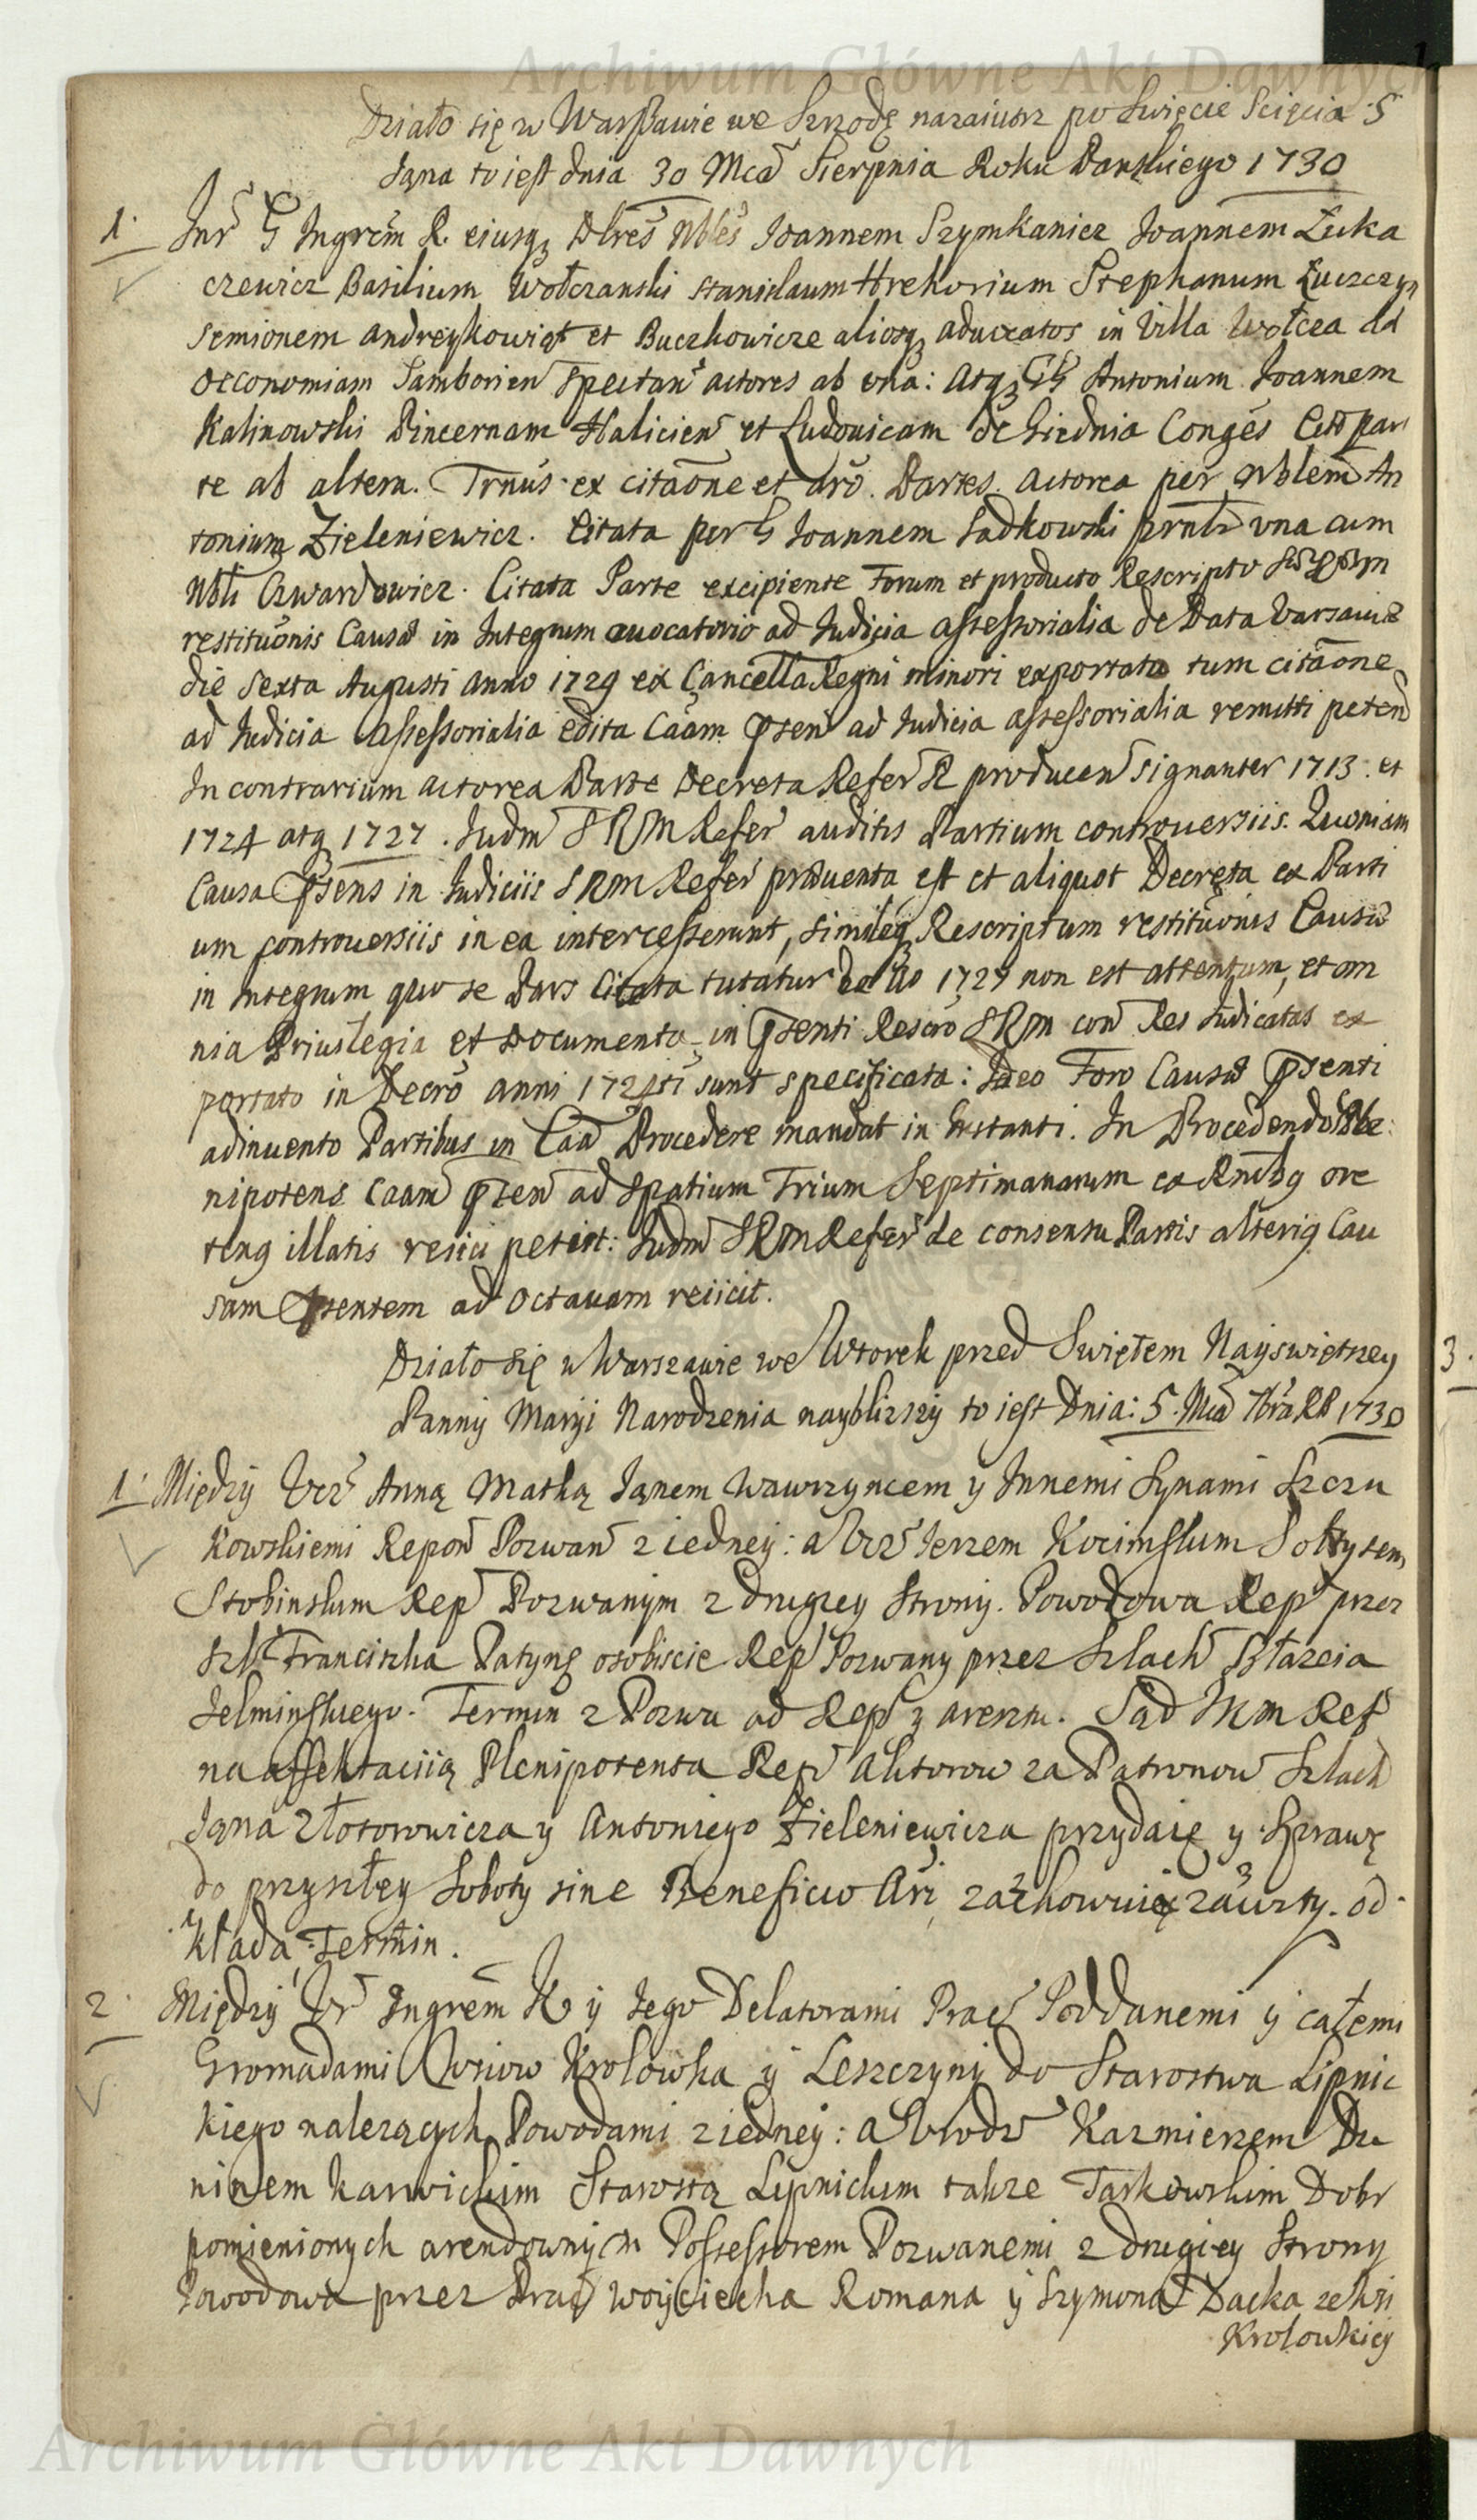 Archiwum Główne Akt Dawnych
1
Działo się w Warszawie we Szrodę nazaiutrz po Swięcie Scięcia S
Jąna to iest dnia 30 Mca Sierpnia Roku Pańskiego 1730
1. Inr G Ingrem R. eiusq Dlres Nbles Joannem Szymkanicz Joannem Łuka
czewicz Basilium Wołczanski Stanislaum Hrehorium Stephanum Łuczczyn
Semionem Andreykowiat et Buczkowicze aliosq aduocatos in Villa Wołcza ad
Oeconomiam Samborien Spectan actores ab vna: Atq G Antonium Joannem
Kalinowski Pincernam Halicien et Ludouicam de Giednia Conges Citt par
te ab altera. Trnus ex citaone et dro. Partes. actorea per Nblem An
tonium Zieleniewicz. Citata per G Joannem Sadkowski prntr vna cum
Nbli Czwardowicz. Citata Parte excipiente Forum et producto Rescripto
restituonis Causa in Integrum auocatorio ad Iudicia assessorialia de Data Varsauiæ
die Sexta Augusti anno 1729 ex Cancella Regni minori exportato tum citaone
ad Iudicia Assessorialia edita Caam Psen ad Iudicia assessorialia remitti peten
In contrarium actorea Parte Decreta Refer R producen signanter 1713. et
1724 atq 1727. Iudm SRM Refer auditis Partium controuersiis. Quoniam
Causa Psens in Iudiciis SRM Refer præuenta est et aliquot Decreta ex Parti
um controuersiis in ea intercesserunt, simileq Rescriptum restituonis Causæ
in Integrum quo se Pars Citata tutatur de Ao 1727 non est attentum, et om
nia Priuilegia et Documenta in Psenti Rescro SRM con Res Iudicatas ex
portato in Decro anni 1724ti sunt specificata: Ideo Foro Causæ Psenti
adinuento Partibus in Caa Procedere mandat in Instanti. In Procedendo Ple
nipotens Caam Psen ad Spatium Trium Septimanarum ex Rnibq ore
tenq illatis reiici petiit: Iudm SRM Refer de consensu Partis alteriq Cau
sam Psentem ad Octauam reiicit.
Działo się w Warszawie we Wtorek przed Swiętem Nayswiętszey
Panny Maryi Narodzenia naybliższy to iest Dnia: 5. Mca 7bra RP 1730
1. Między Ucz Anną Matką Jąnem Wawrzyncem y Innemi Synami Szczu
kowskiemi Repow Pozwan z iedney: a Ucz Jerzem Kocimskim Sołtysem
Stobinskim Rep Pozwanym z drugiey strony. Powodowa Rep przez
Szl Franciszka Patynę osobiscie Rep Pozwany przez Szlach Błazeia
Jelminskiego. Termin z Pozwu ad Rep z aresztu. Sąd JKM Ref
na affektaciią Plenipotenta Rep Aktorow za Patronow Szlach
Jąna Złotorowicza y Antoniego Zieleniewicza przydaię y Sprawę
do przyszłey Soboty sine Beneficio Ari, zachowuię zawity. od
kłada Termin.
2. Między Ur Ingrem K y Jego Delatorami Prac Poddanemi y całemi
Gromadami Wsiow Krolowka y Leszczyny do Starostwa Lipnic
kiego nalezących Powodami z iedney: a Urodz Kazmierzem Du
ninem Karwickim Starostą Lipnickim także Tarkowskim Dobr
pomienionych arendownym Possessorem Pozwanemi z drugiey Strony
Powodowa przez Prac Woyciecha Romana y Szymona Dacka ze Wsi
Krolowkiey
3.
Archiwum Główne Akt Dawnych